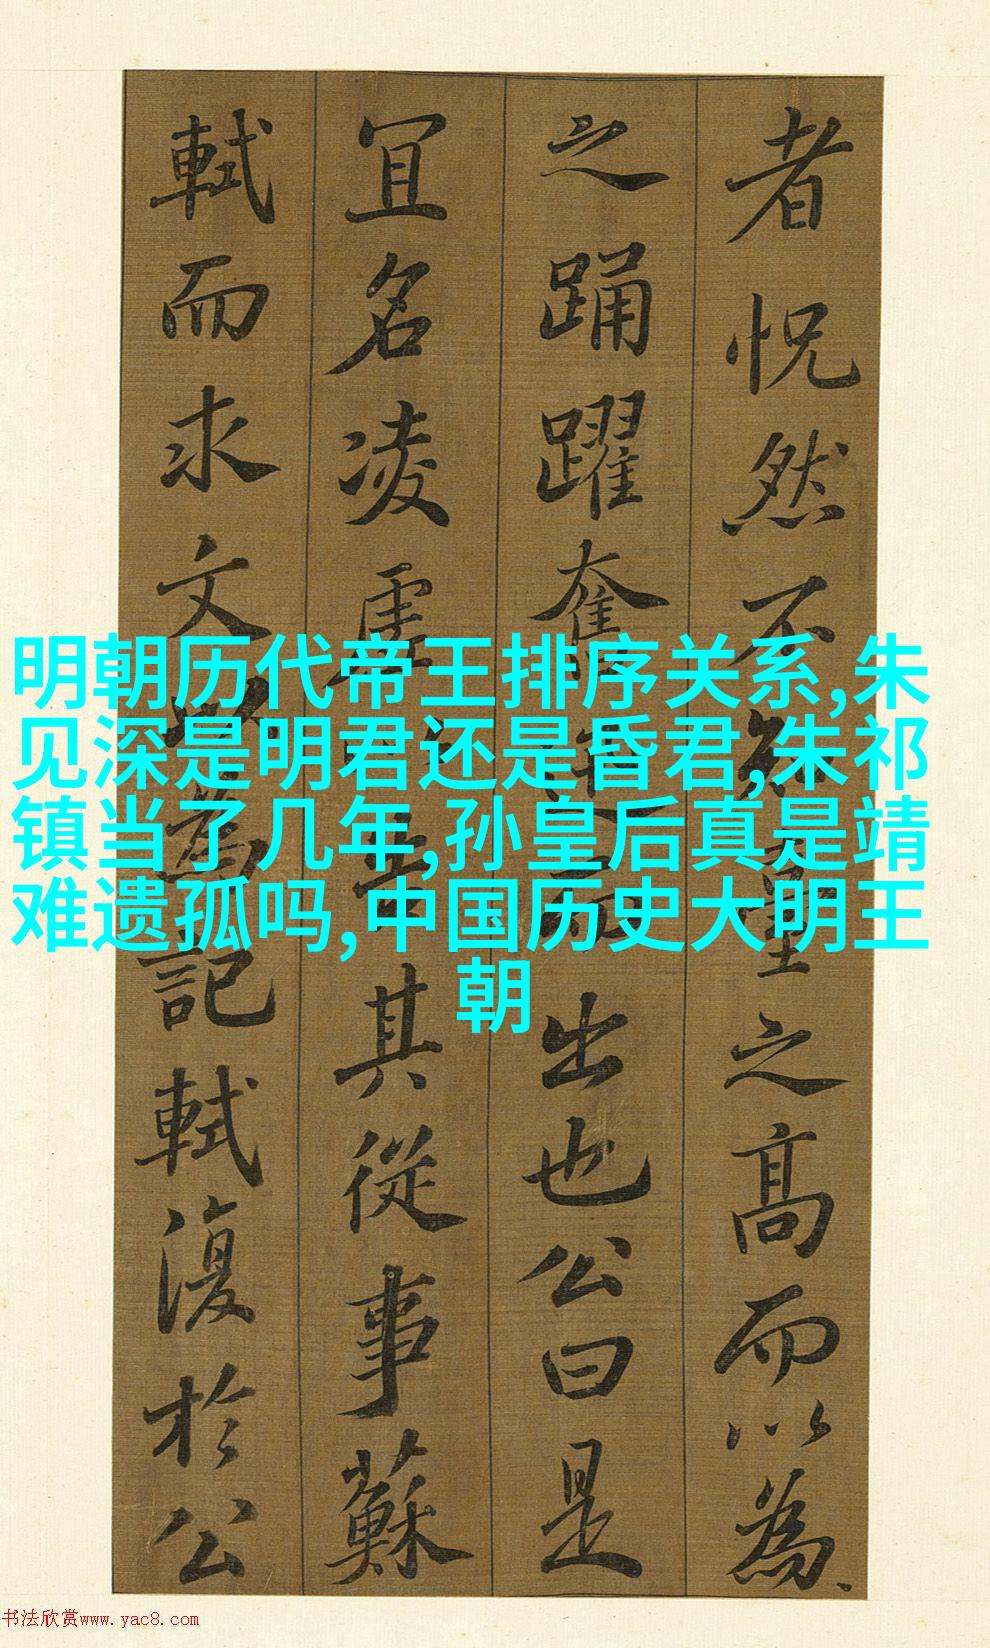 者怳然不知臺之高而以為
之踊躍奮迅而出也公曰是
冝名凌虛以告其從事蘇
軾而求文以為記軾復於公
明朝历代帝王排序关系,朱
见深是明君还是昏君,朱祁
镇当了几年,孙皇后真是靖
难遗孤吗,中国历史大明王
朝
书法欣赏www.yac8.com